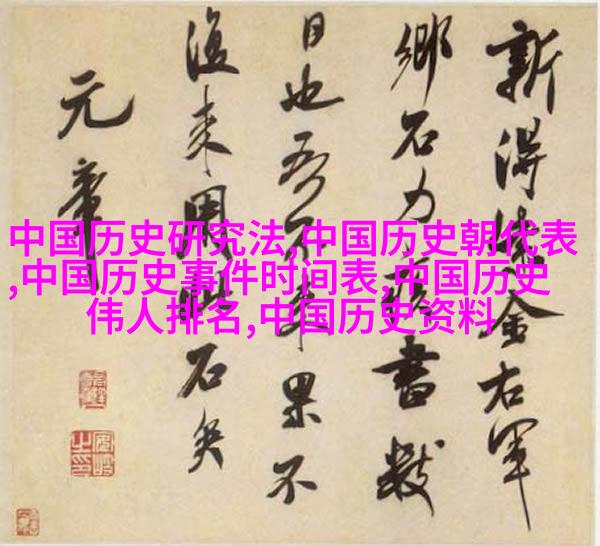 中国历史研究法,中国历史朝代表
,中国历史事件时间表,中国历史
伟人排名,中国历史资料
新得金右軍
鄉石力書數
日也吾不来果不
復来石矣
元章